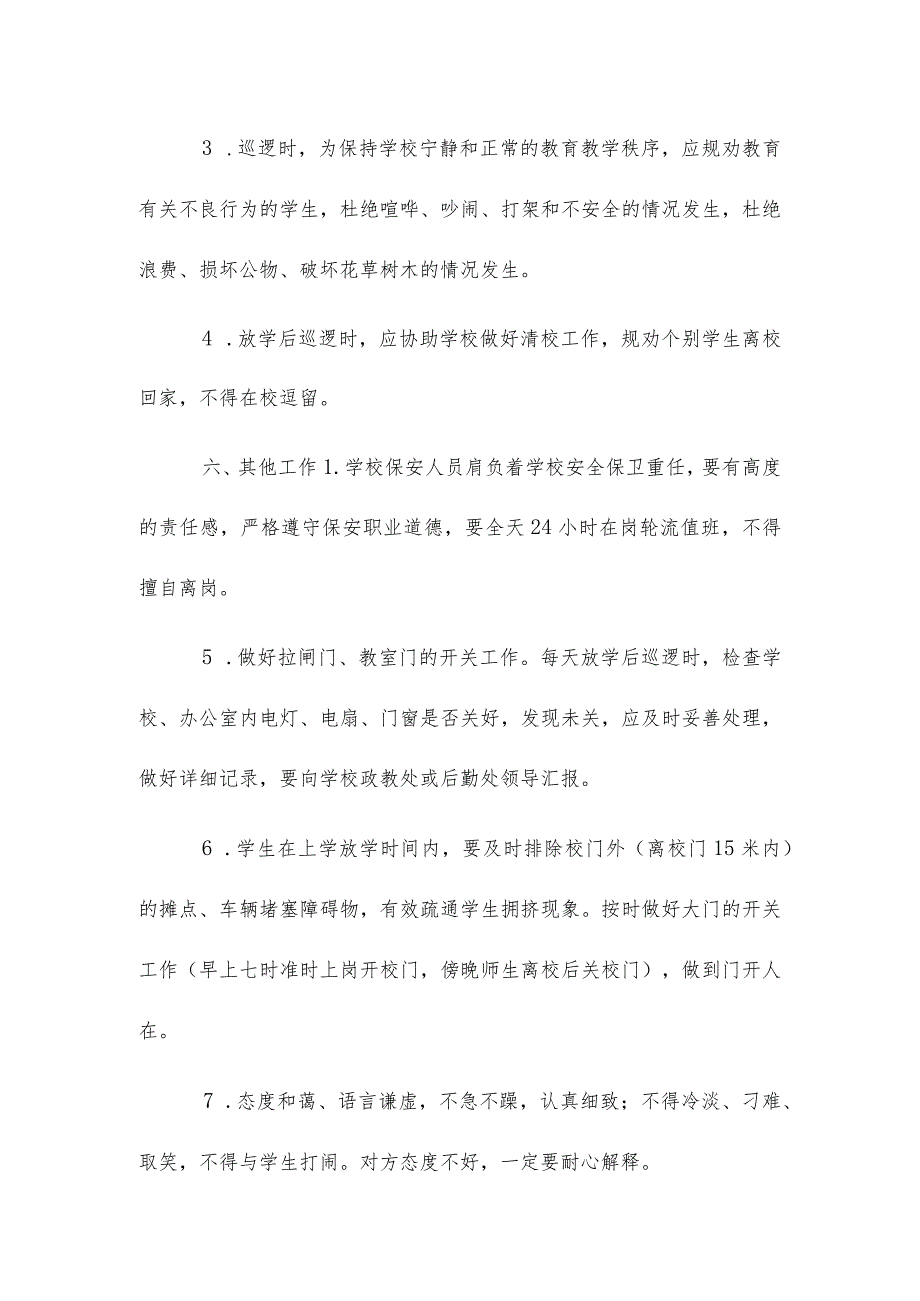 3 .巡逻时，为保持学校宁静和正常的教育教学秩序，应规劝教育
有关不良行为的学生，杜绝喧哗、吵闹、打架和不安全的情况发生，杜绝
浪费、损坏公物、破坏花草树木的情况发生。
4 .放学后巡逻时，应协助学校做好清校工作，规劝个别学生离校
回家，不得在校逗留。
六、其他工作 1.学校保安人员肩负着学校安全保卫重任，要有高度
的责任感，严格遵守保安职业道德，要全天 24 小时在岗轮流值班，不得
擅自离岗。
5 .做好拉闸门、教室门的开关工作。每天放学后巡逻时，检查学
校、办公室内电灯、电扇、门窗是否关好，发现未关，应及时妥善处理，
做好详细记录，要向学校政教处或后勤处领导汇报。
6 .学生在上学放学时间内，要及时排除校门外（离校门 15 米内）
的摊点、车辆堵塞障碍物，有效疏通学生拥挤现象。按时做好大门的开关
工作（早上七时准时上岗开校门，傍晚师生离校后关校门），做到门开人
在。
7 .态度和蔼、语言谦虚，不急不躁，认真细致；不得冷淡、刁难、
取笑，不得与学生打闹。对方态度不好，一定要耐心解释。